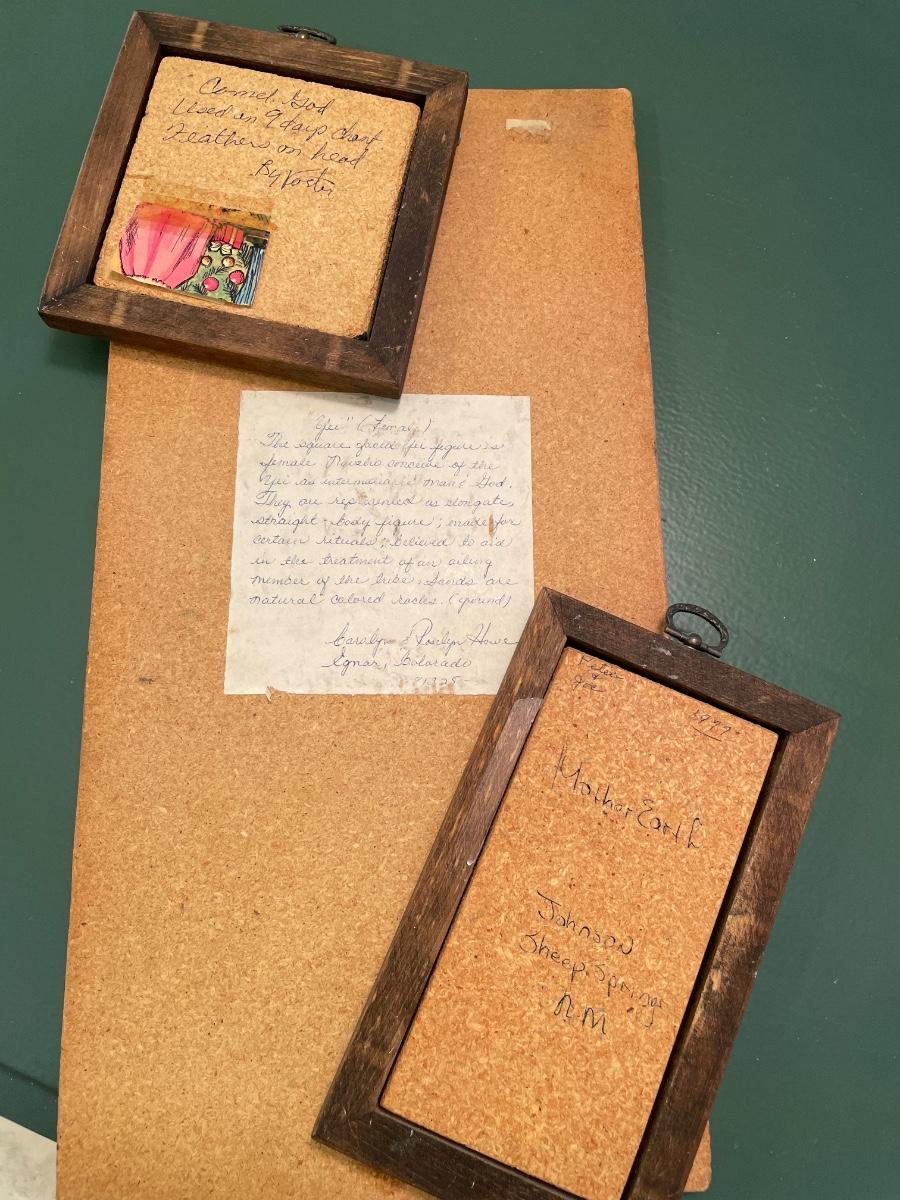 Camel God
Used in 9 days chant
Feathers on head
By Foster
"Yei" (Female)
The square faced Yei figure is
female. Navaho conceive of the
Yei as intermediaries man & God.
They are represented as elongate,
straight-body figure; made for
certain rituals; believed to aid
in the treatment of an ailing
member of the tribe. Sands are
natural colored rocks. (ground)
Carolyn & Roselyn Howe
Egnar, Colorado
Peter
Joe
1977
Mother Earth
Johnson
Sheep Springs
N.M